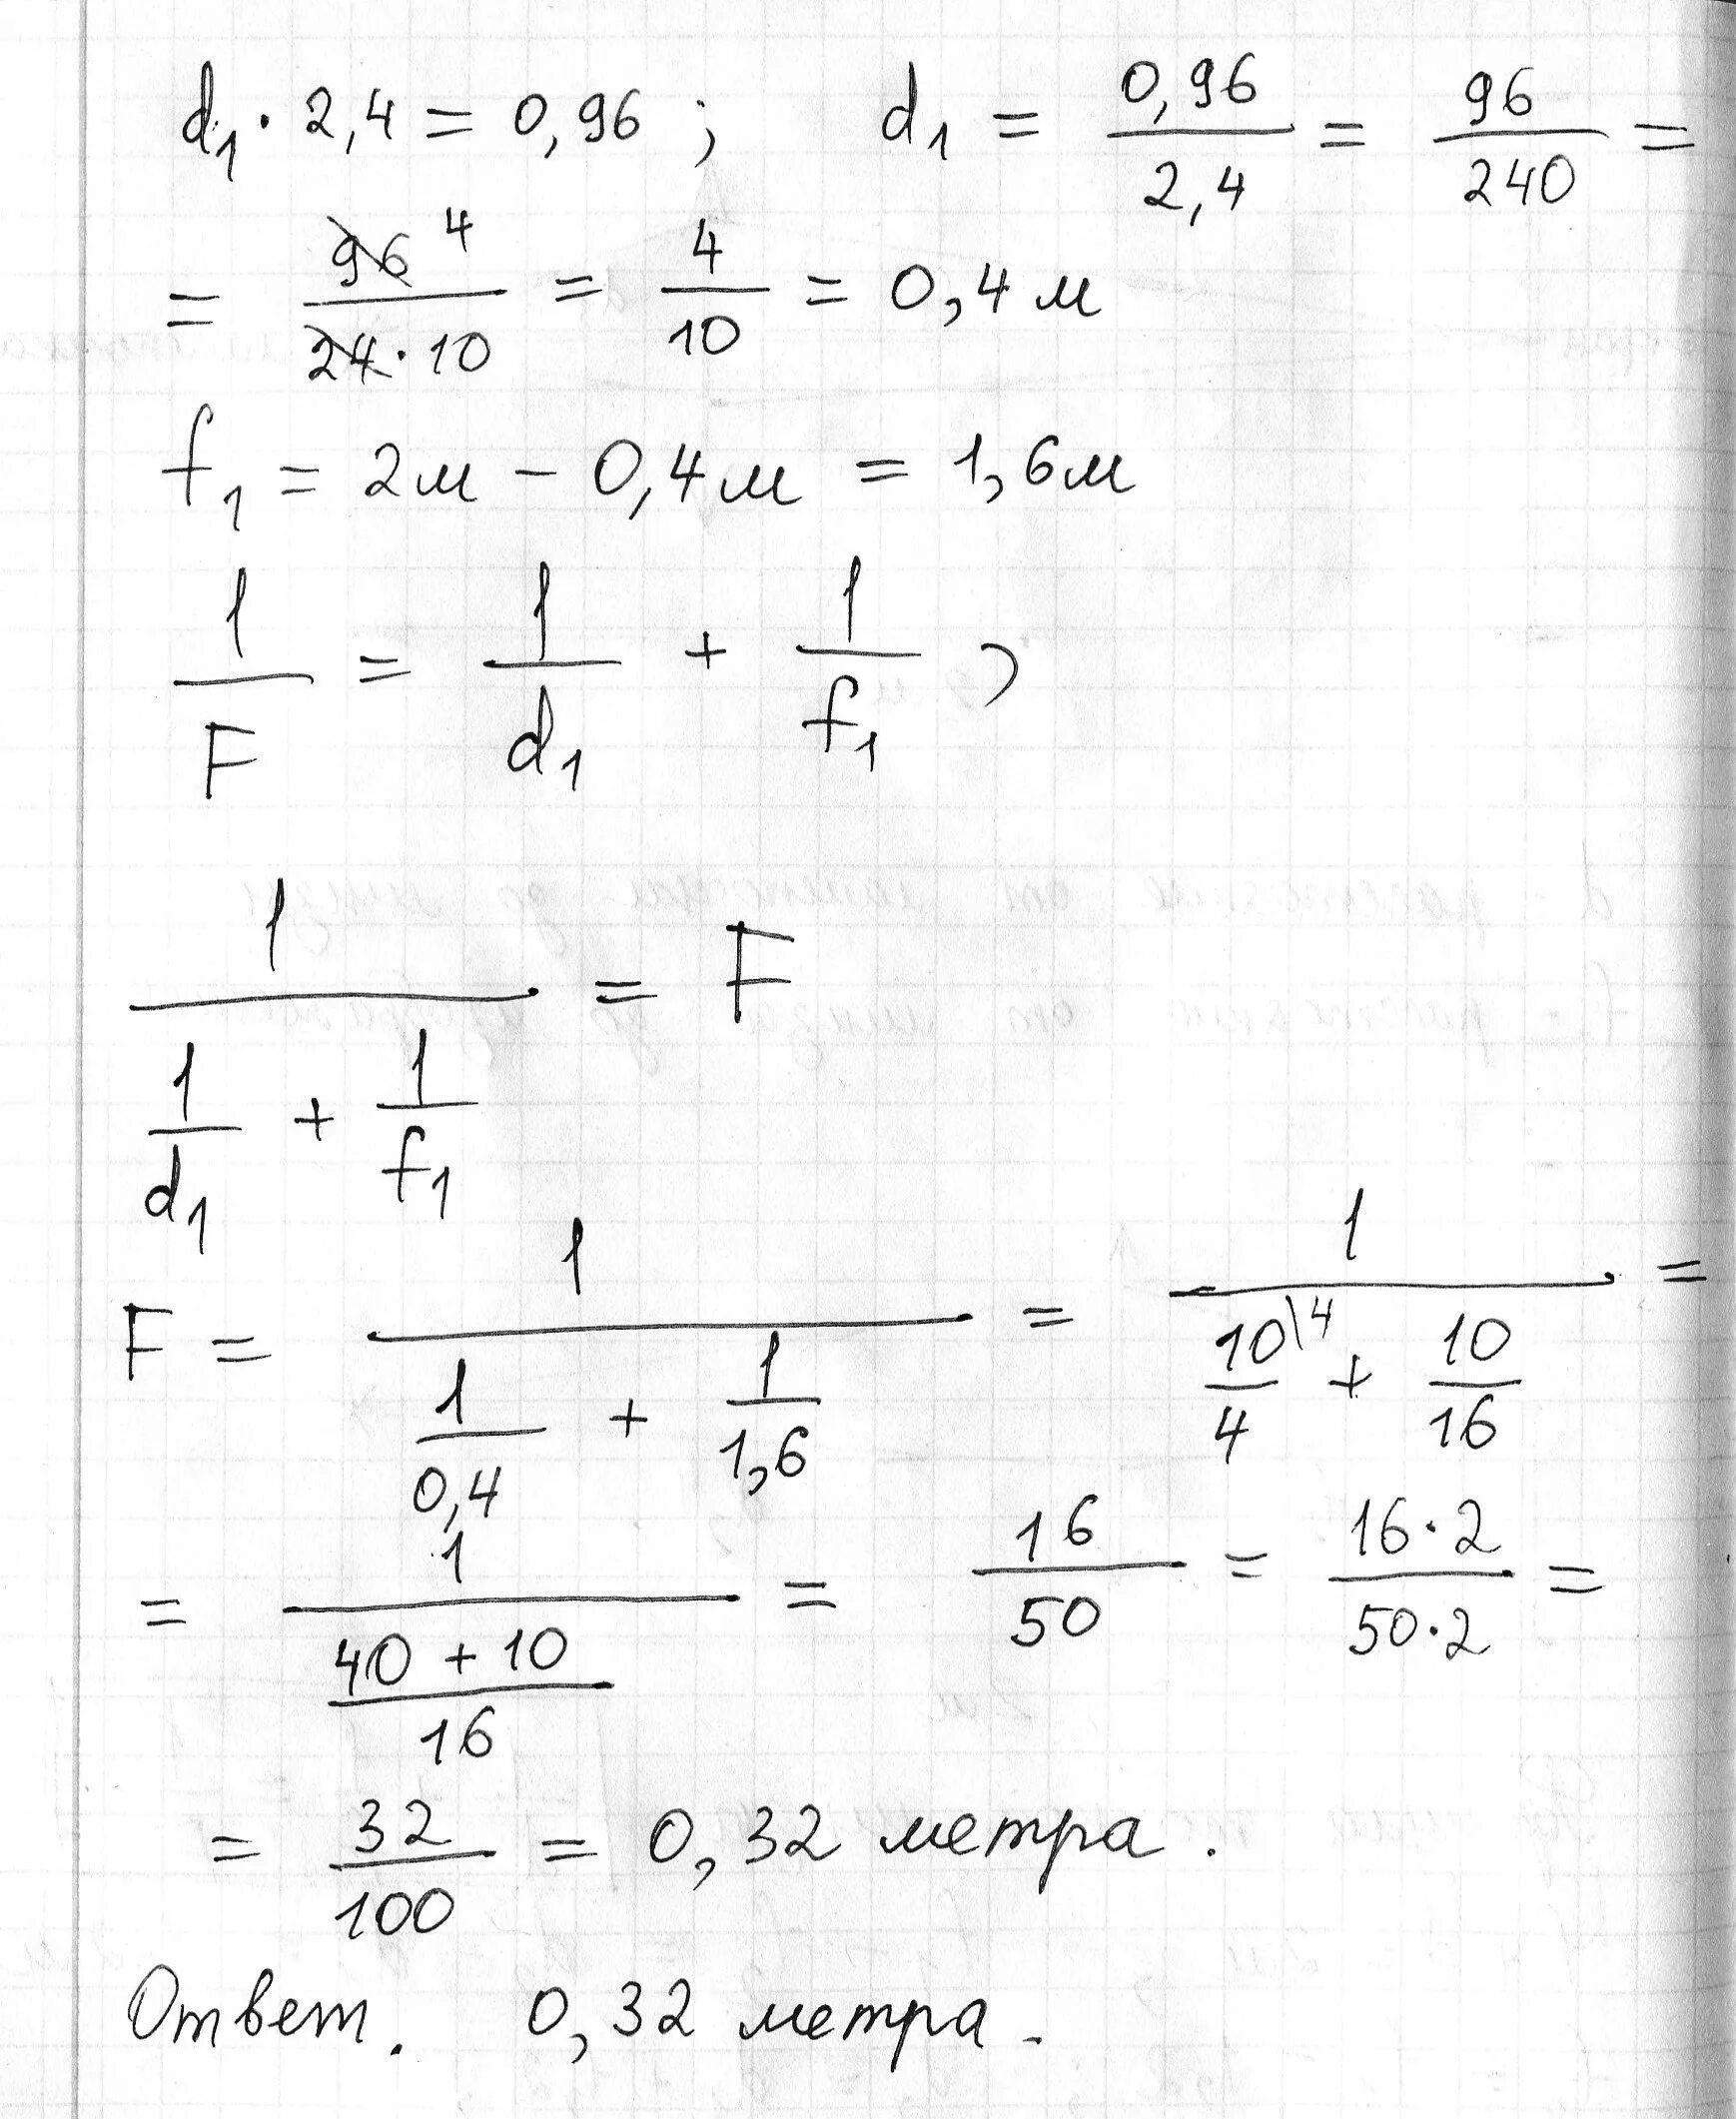 d₁ · 2,4 = 0,96 ; d₁ = 0,96/2,4 = 96/240 =
= 96 4/24·10 = 4/10 = 0,4 м
f₁ = 2м − 0,4 м = 1,6м
1/F = 1/d₁ + 1/f₁ ,
1/(1/d₁ + 1/f₁) = F
F = 1/(1/0,4 + 1/1,6) = 1/(10\4/4 + 10/16) =
= 1/((40 + 10)/16) = 16/50 = 16·2/50·2 =
= 32/100 = 0,32 метра .
Ответ. 0,32 метра .